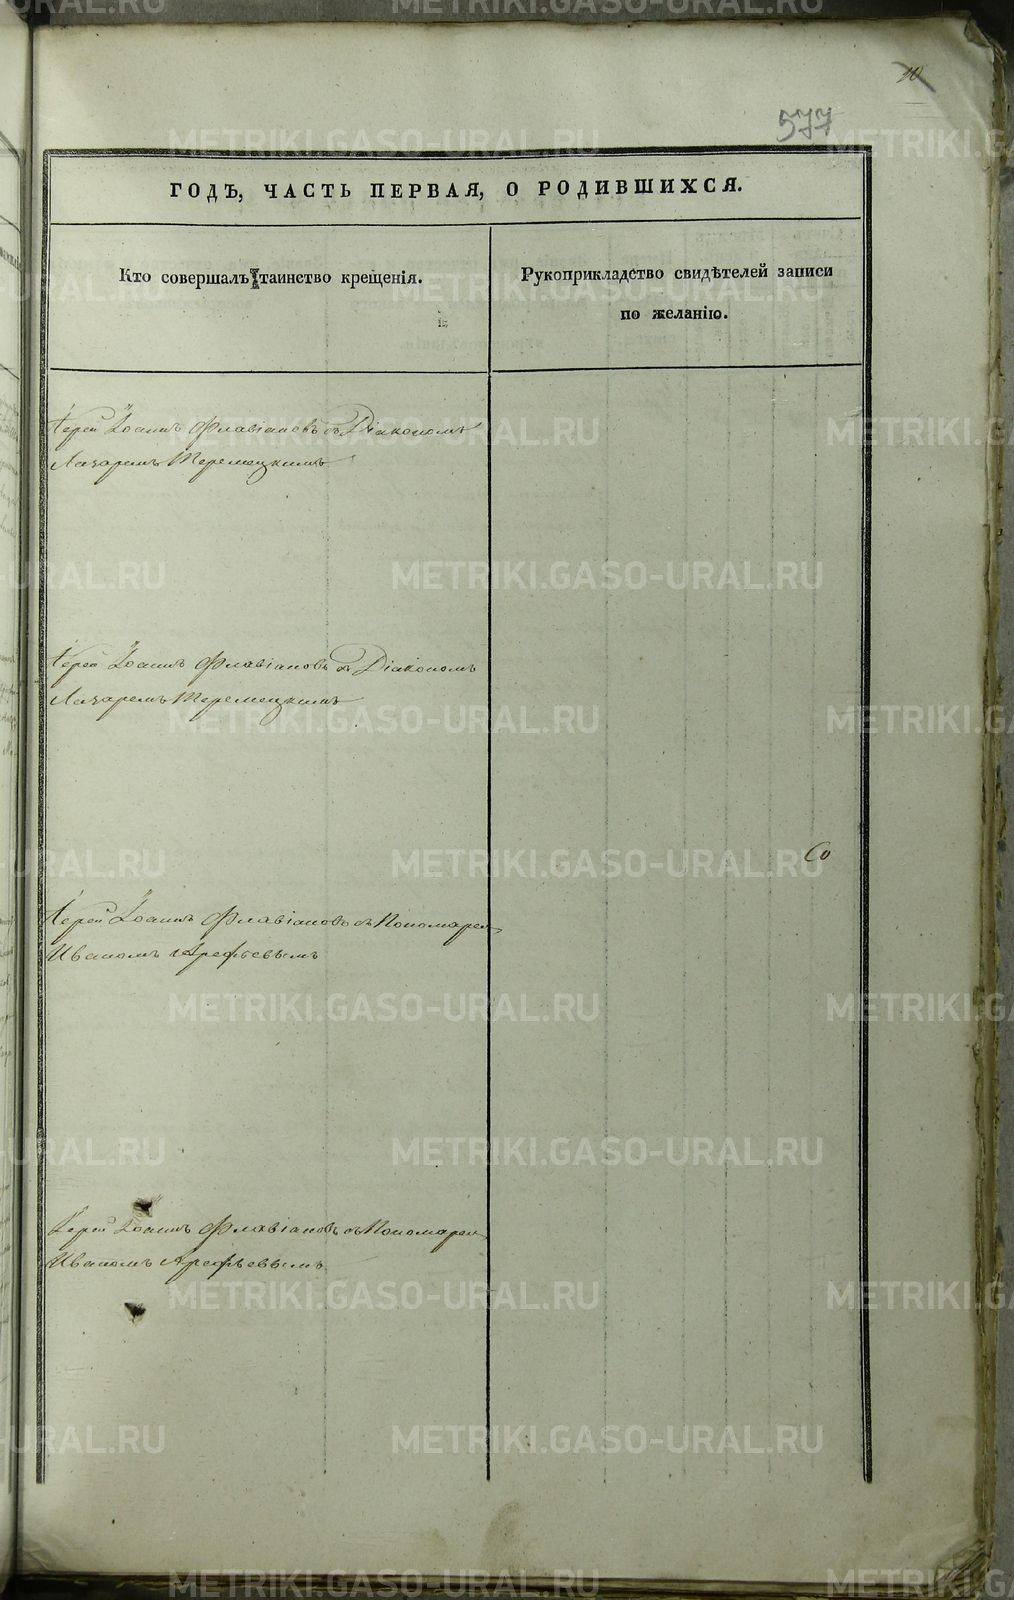 10
577
ГОДЪ, ЧАСТЬ ПЕРВАЯ, О РОДИВШИХСЯ.
Кто совершалъ таинство крещенія.
Рукоприкладство свидѣтелей записи
по желанію.
Іерей Іоаннъ Флавіановъ съ Діакономъ
Лазаремъ Теремецкимъ
Іерей Іоаннъ Флавіановъ съ Діакономъ
Лазаремъ Теремецкимъ
Со
Іерей Іоаннъ Флавіановъ съ Пономарем
Иваномъ Арефьевымъ
Іерей Іоаннъ Флавіановъ съ Пономарем
Иваномъ Арефьевымъ
METRIKI.GASO-URAL.RU